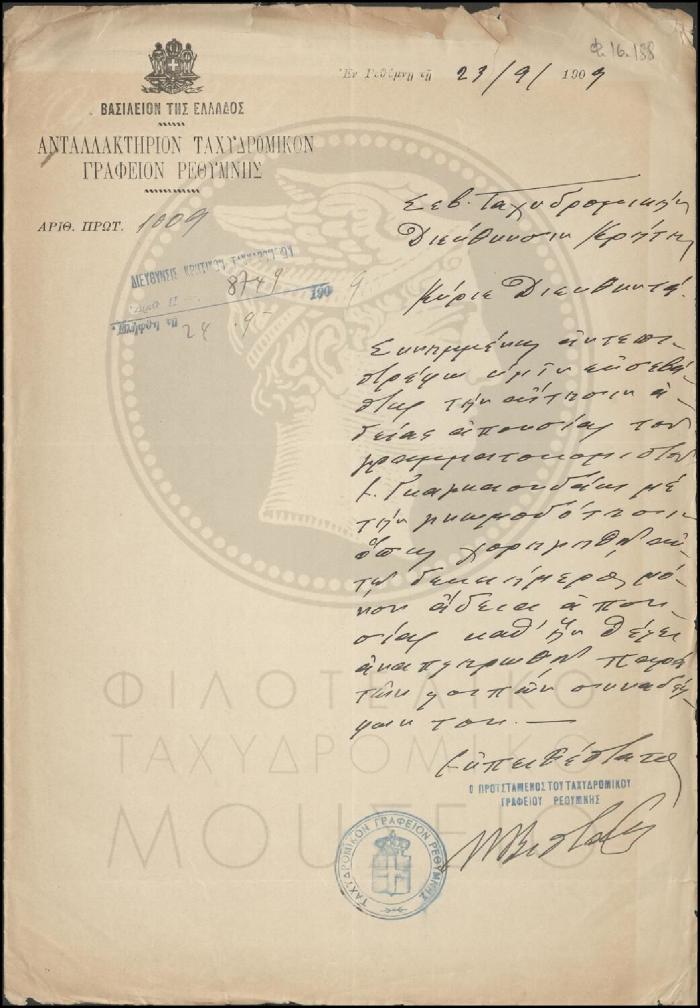 φ. 16.188
Ἐν Ρεθύμνῃ τῇ 23/9/1909
ΒΑΣΙΛΕΙΟΝ ΤΗΣ ΕΛΛΑΔΟΣ
ΑΝΤΑΛΛΑΚΤΗΡΙΟΝ ΤΑΧΥΔΡΟΜΙΚΟΝ
ΓΡΑΦΕΙΟΝ ΡΕΘΥΜΝΗΣ
ΑΡΙΘ. ΠΡΩΤ. 1009
ΔΙΕΥΘΥΝΣΙΣ ΚΡΗΤΙΚΩΝ ΤΑΧΥΔΡΟΜΕΙΩΝ
8749
1909
24 . 9 -
Σεβ. Ταχυδρομικὴν
Διεύθυνσιν Κρήτης
Κύριε Διευθυντά.
Συνημμένως ἀντεπι-
στρέφω ὑμῖν εὐσεβά-
στως τὴν αἴτησιν ἀ-
δείας ἀπουσίας τοῦ
γραμματοκομιστοῦ
μὲ
τὴν γνωμοδότησιν
ὅπως χορηγηθῇ αὐ-
τῷ δεκαήμερος μό-
νον ἄδεια ἀπου-
σίας καθ' ἣν θέλει
ἀναπληρωθῇ παρὰ
τῶν λοιπῶν συναδέλ-
φων του. —
Εὐπειθέστατος
Ο ΠΡΟΪΣΤΑΜΕΝΟΣ ΤΟΥ ΤΑΧΥΔΡΟΜΙΚΟΥ
ΓΡΑΦΕΙΟΥ ΡΕΘΥΜΝΗΣ
ΤΑΧΥΔΡΟΜΙΚΟΝ ΓΡΑΦΕΙΟΝ ΡΕΘΥΜΝΗΣ
ΦΙΛΟΤΕΛΙΚΟ
ΤΑΧΥΔΡΟΜΙΚΟ
ΜΟΥΣΕΙΟ